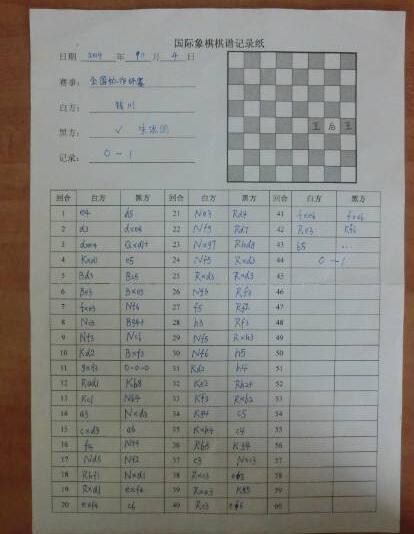 国际象棋棋谱记录纸
日期 年 月 4 日
赛事:
白方:
黑方: √
记录: 0-1
王 后 王
回合 白方 黑方 回合 白方 黑方 回合 白方 黑方
1 e4 d5 21 Ne3 Rd4 41 fxe6 fxe6
2 d3 dxe4 22 Nf5 Rd7 42 Re3 Kf6
3 dxe4 Qxd1+ 23 Nxg7 Rhd8 43 b5 ..
4 Kxd1 e5 24 Nf5 Rxd3 44 0-1
5 Bd3 Bc5 25 Rxd3 Rxd3 45
6 Be3 Bxe3 26 Ng3 Rf3 46
7 fxe3 Nf6 27 f5 Rf2 47
8 Nc3 Bg4+ 28 h3 Rf3 48
9 Nf3 Nc6 29 Nf5 Rxh3 49
10 Kd2 Bxf3 30 Nf6 h5 50
11 gxf3 0-0-0 31 Kd2 h4 51
12 Rad1 Kb8 32 Ke2 Rh2+ 52
13 Kc1 Nb4 33 Kf3 Rxb2 53
14 a3 Nxd3 34 Kg4 c5 54
15 cxd3 a6 35 Kxh4 c4 55
16 f4 36 56
17 Nd5 Nf2 37 e3 Nxc3 57
18 Rhf1 Nxd1 38 Rxc3 58
19 Rxd1 exf4 39 59
20 exf4 c6 40 Re3 60